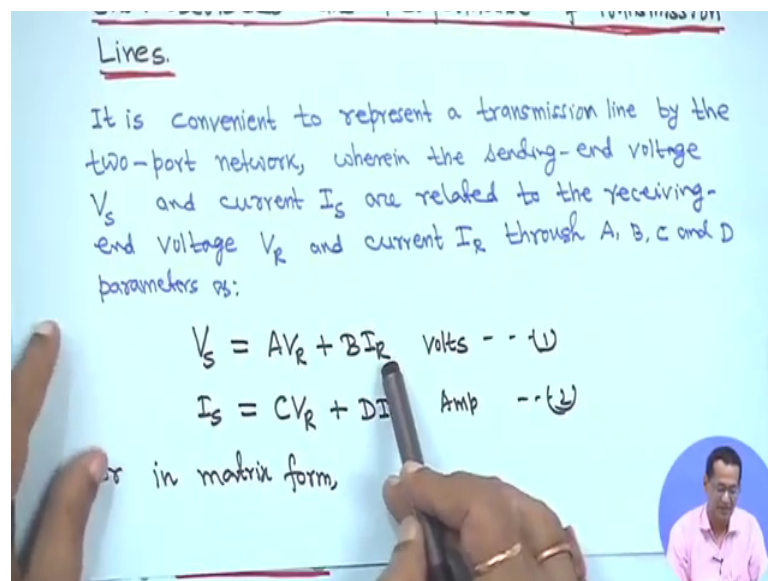 Transmission
Lines.
It is convenient to represent a transmission line by the
two-port network, wherein the sending-end voltage
V_S and current I_S are related to the receiving-
end voltage V_R and current I_R through A, B, C and D
parameters as:
V_S = AV_R + BI_R volts - - - (1)
I_S = CV_R + DI Amp - - (2)
or in matrix form,